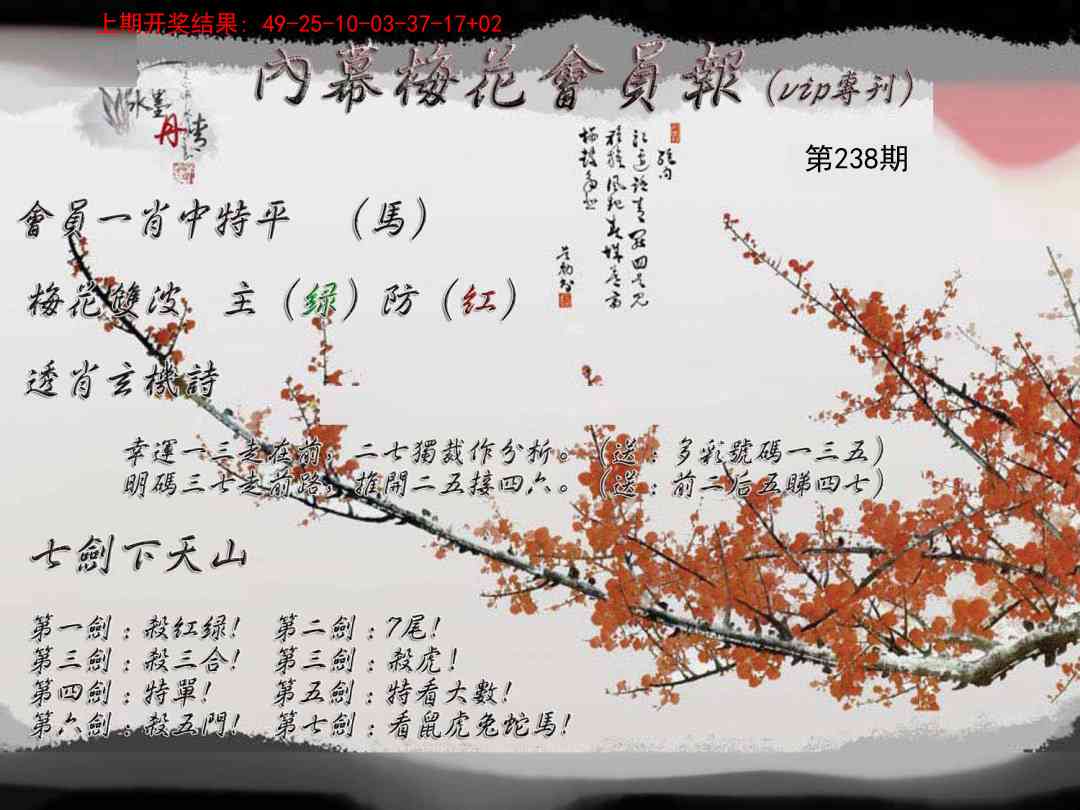 上期开奖结果: 49-25-10-03-37-17+02
內幕梅花會員報(vip專刊)
水墨
丹青
第238期
會員一肖中特平 (馬)
梅花雙波 主(绿)防(红)
透肖玄機詩
幸運一三走在前，二七獨裁作分析。(送:多彩號碼一三五)
明碼三七走前路，推開二五接四六。(送:前二后五睇四七)
七劍下天山
第一劍:殺红绿! 第二劍:7尾!
第三劍:殺三合! 第三劍:殺虎!
第四劍:特單! 第五劍:特看大數!
第六劍:殺五門! 第七劍:看鼠虎兔蛇馬!